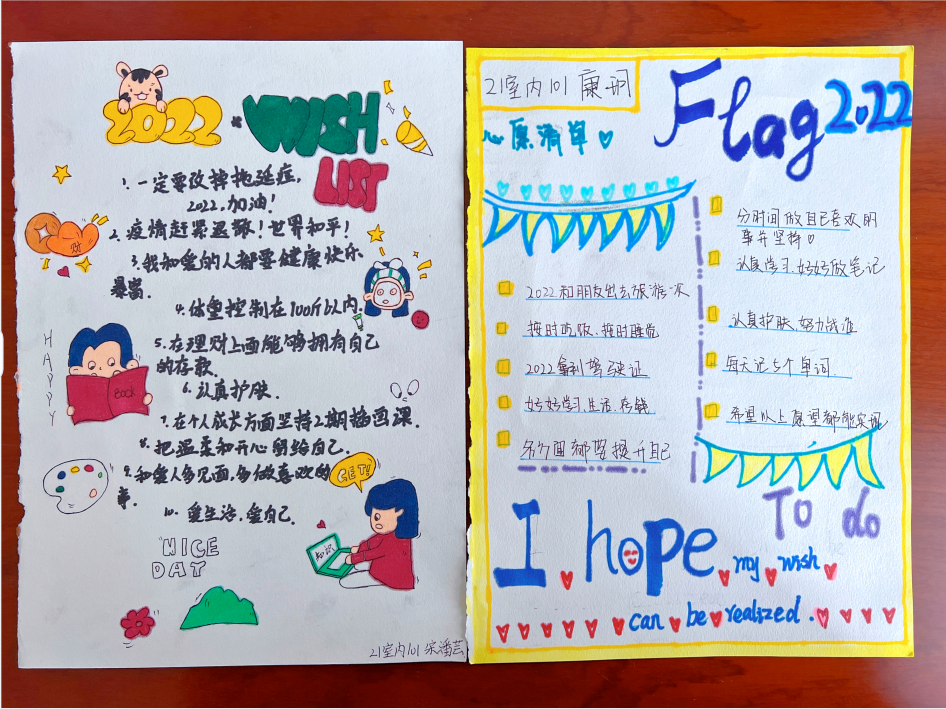 2022 WISH
LIST
1. 一定要改掉拖延症,
2022.加油!
2. 疫情赶紧退散! 世界和平!
3. 我和爱的人都要健康快乐
暴富.
4. 体重控制在100斤以内.
5. 在理财上面能够拥有自己
的存款.
6. 认真护肤.
7. 在个人成长方面坚持2期插画课.
8. 把温柔和开心留给自己.
9. 和爱人多见面,多做喜欢的
事.
10. 爱生活.爱自己.
HAPPY
Book
GET!
知识
NICE
DAY
21室内101 宋潘芸
21室内101 康珂
Flag 2022
心愿清单
2022和朋友出去旅游一次
按时吃饭.按时睡觉
2022拿到驾驶证
好好学习.生活.存钱
多方面都要提升自己
分时间做自己喜欢的
事并坚持
认真学习.好好做笔记
认真护肤.努力
每天记5个单词.
希望以上愿望都能实现
To do
I hope my wish
can be realized.